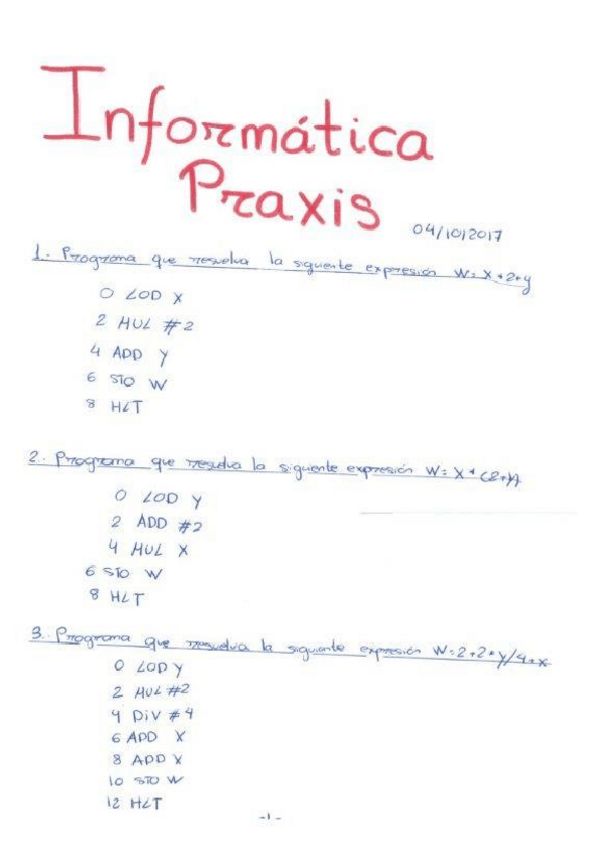 Informática
Praxis
04/10/2017
1. Programa que resuelva la siguiente expresión W= X*2+y
0 LOD X
2 MUL #2
4 ADD Y
6 STO W
8 HLT
2. Programa que resuelva la siguiente expresión W= X*(2+y)
0 LOD Y
2 ADD #2
4 MUL X
6 STO W
8 HLT
3. Programa que resuelva la siguiente expresión W=2+2*y/4+x
0 LOD Y
2 MUL #2
4 DiV #4
6 ADD X
8 ADD X
10 STO W
12 HLT
-1-